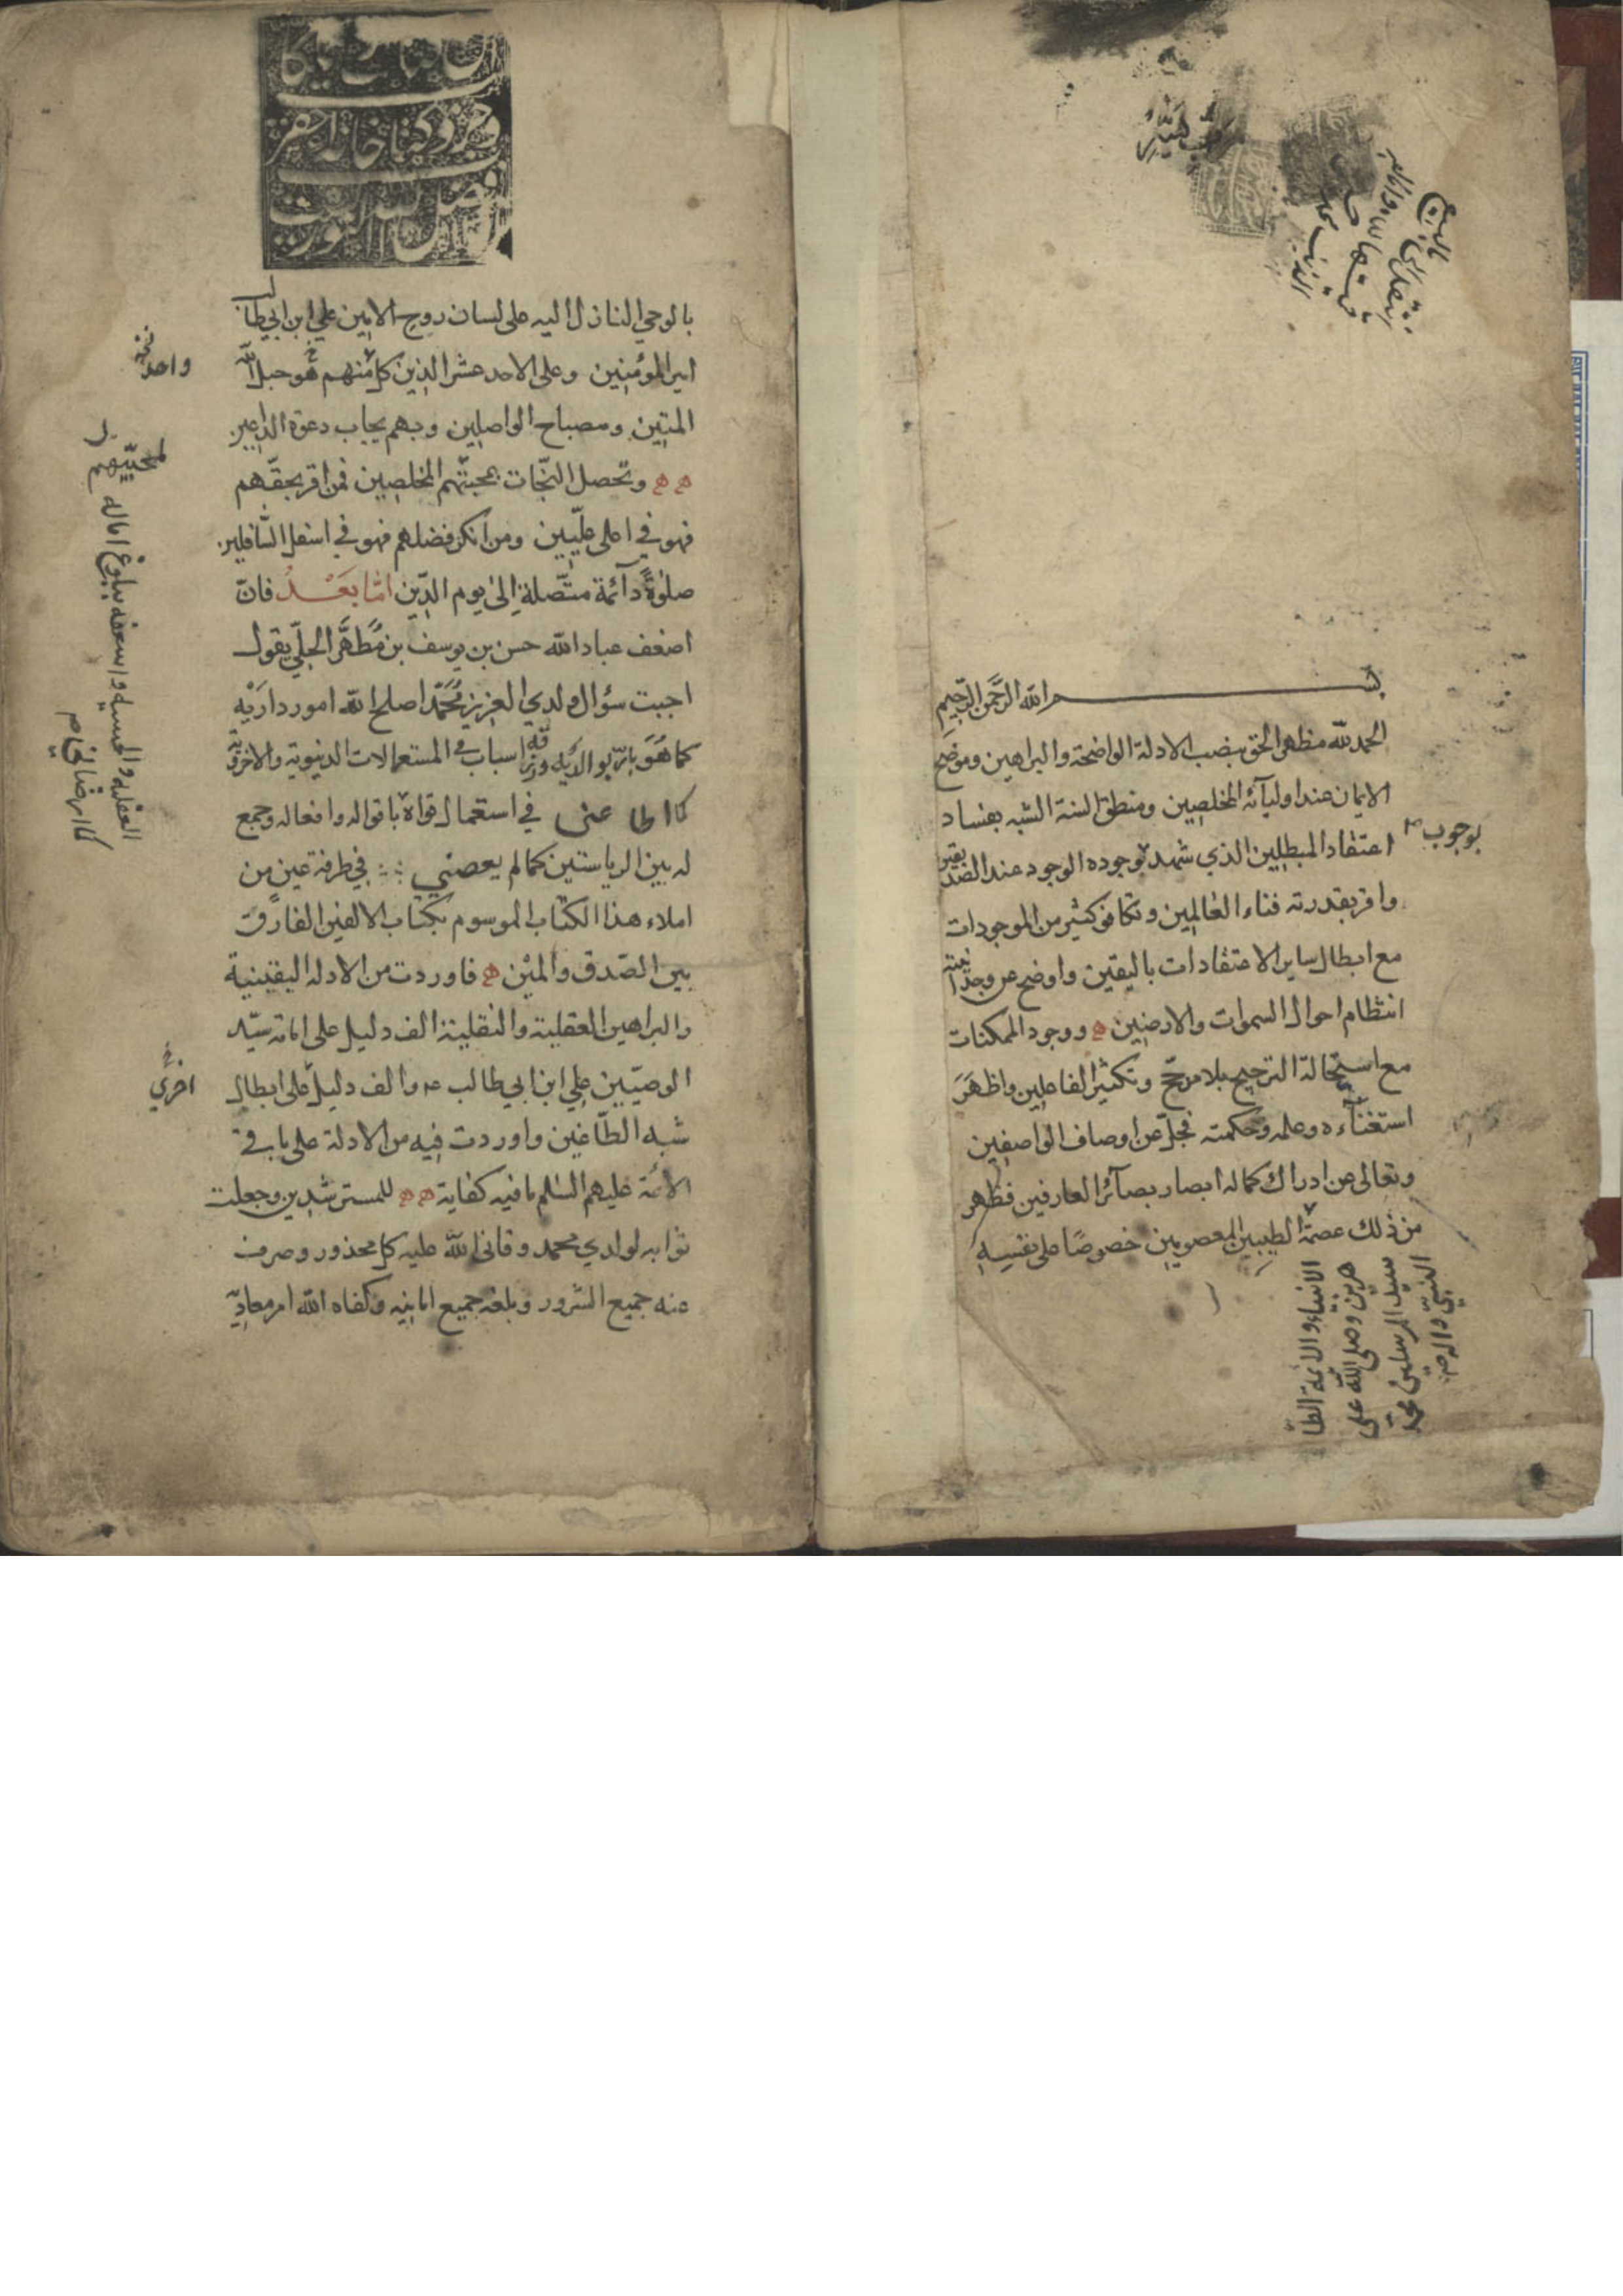 بســـــــم الله الرَّحمن الرَّحیمِ
الحمد لله مظهر الحق بنصب الادلة الواضحة والبراهين وموضح
الايمان عند اوليآئه المخلصِين ومنطق السنة الشبه بفساد
اعتقاد المبطلين الذي شهد بوجوده الوجود عند الصديقين
بوجوب
واقر بقدرته فناء العٰالمِين وتكافؤ كثير من الموجودات
مع ابطال ساير الاعتقادات باليقين واوضح عن وحدانيته
انتظام احوال السموات والارضِين ووجود الممكنات
مع استحالة الترجيح بلا مرجّح وتكثيّر الفاعلِين واظهَرَ
استغنآءه وعلمه وحكمته فجلّ عن اوصاف الواصفِين
وتعالى عن ادراك كماله ابصار بصآئر العارفين فظهر
من ذٰلك عصمة الطيبين المعصومين خصوصًا على نفسِهِ
الانبياء والائمة الطا
هرين وصلى الله على
سيد المرسلين محمد
النبيّ واله
بالوحي النازل اليه على لسان روح الامين علي ابن ابي طالب
امير المؤمنِين وعلى الاحد عشر الذين كل منهم هو حبل الله
نسخة
واحد
المتِين ومصباح الواصلِين وبهم يجاب دعوة الداعين
وتحصل النّجات بمحبتّهم المخلصِين فمن اقر بحقّهم
لمحبّيهم
فهو في اعلى علّيين ومن انكر فضلهم فهو في اسفل السّافلين
صلٰوةً دآئمة متّصلة الىٰ يوم الدّين امّا بَعْــدُ فانّ
اضعف عباد الله حسن بن يوسف بن مُطهَّر الحِلّي يقول
اجبت سؤال ولدي العزيز مُحَمَّد اصلح الله امور دارَيْهِ
كما هُوَ بارّ بوالدَيْه ورزقه اسباب في المستعمالات الدنيوية والاخروية
كما اطاعني في استعمال قواه باقواله وافعاله وجمع
له بين الرياستين كما لم يعصني في طرفة عين من
املاء هذا الكتاب الموسوم بكتاب الالفين الفارق
بين الصّدق والمَيْن فاوردت من الادله اليقينية
والبراهين العقلية والنقلية الف دليل على امامة سيّد
الوصيّين علي ابن ابي طالب عه والف دليل على ابطال
اخري
شبه الطّاغين واوردت فيه من الادلة على باقي
الائمّة عليهم السلم ما فيه كفاية للمسترشدين وجعلت
ثوابه لولدي محمد وقاني الله عليه كل محذور وصرف
عنه جميع الشرور وبلغه جميع امانيه وكفاه الله امر معاديه
العقليه والحسيه واسعفه ببلوغ اماله